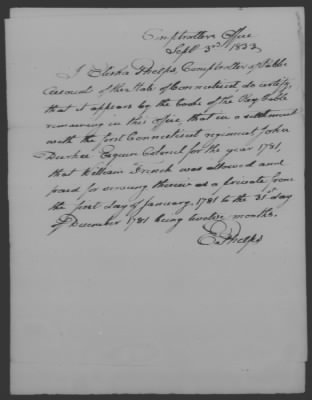 Comptrollers Office
Sept 3rd 1833
I Elisha Phelps, Comptroller of Public
Account of the State of Connecticut do certify,
that it appears by the books of the Pay Table
remaining in this office, that in a settlement
with the first Connecticut regiment John
Durkee Esquire Colonel for the year 1781,
that William French was allowed and
paid for serving therein as a private from
the first day of January, 1781 to the 31st day
of December 1781 being twelve months.
E. Phelps